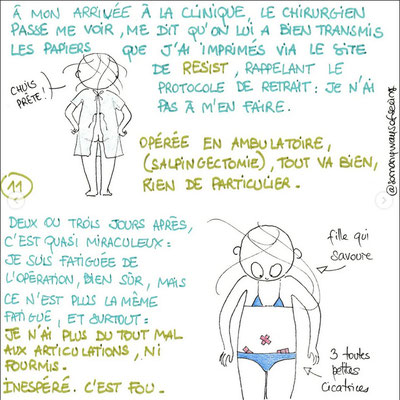 À MON ARRIVÉE À LA CLINIQUE, LE CHIRURGIEN
PASSE ME VOIR, ME DIT QU'ON LUI A BIEN TRANSMIS
LES PAPIERS QUE J'AI IMPRIMÉS VIA LE SITE
DE RESIST, RAPPELANT LE
PROTOCOLE DE RETRAIT : JE N'AI
PAS À M'EN FAIRE.
CHUIS
PRÊTE !
OPÉRÉE EN AMBULATOIRE,
(SALPINGECTOMIE), TOUT VA BIEN,
RIEN DE PARTICULIER.
11
DEUX OU TROIS JOURS APRÈS,
C'EST QUASI MIRACULEUX :
JE SUIS FATIGUÉE DE
L'OPÉRATION, BIEN SÛR, MAIS
CE N'EST PLUS LA MÊME
FATIGUE, ET SURTOUT :
JE N'AI PLUS DU TOUT MAL
AUX ARTICULATIONS, NI
FOURMIS.
INESPÉRÉ. C'EST FOU.
fille qui
savoure
3 toutes
petites
cicatrices